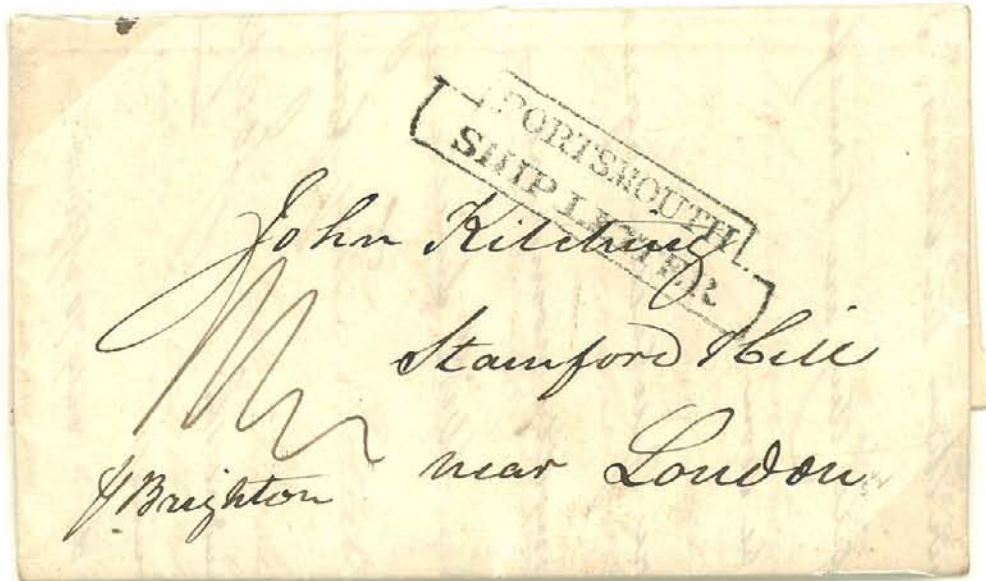 PORTSMOUTH
SHIP LETTER
John Kitching
Stamford Hill
near London
p Brighton